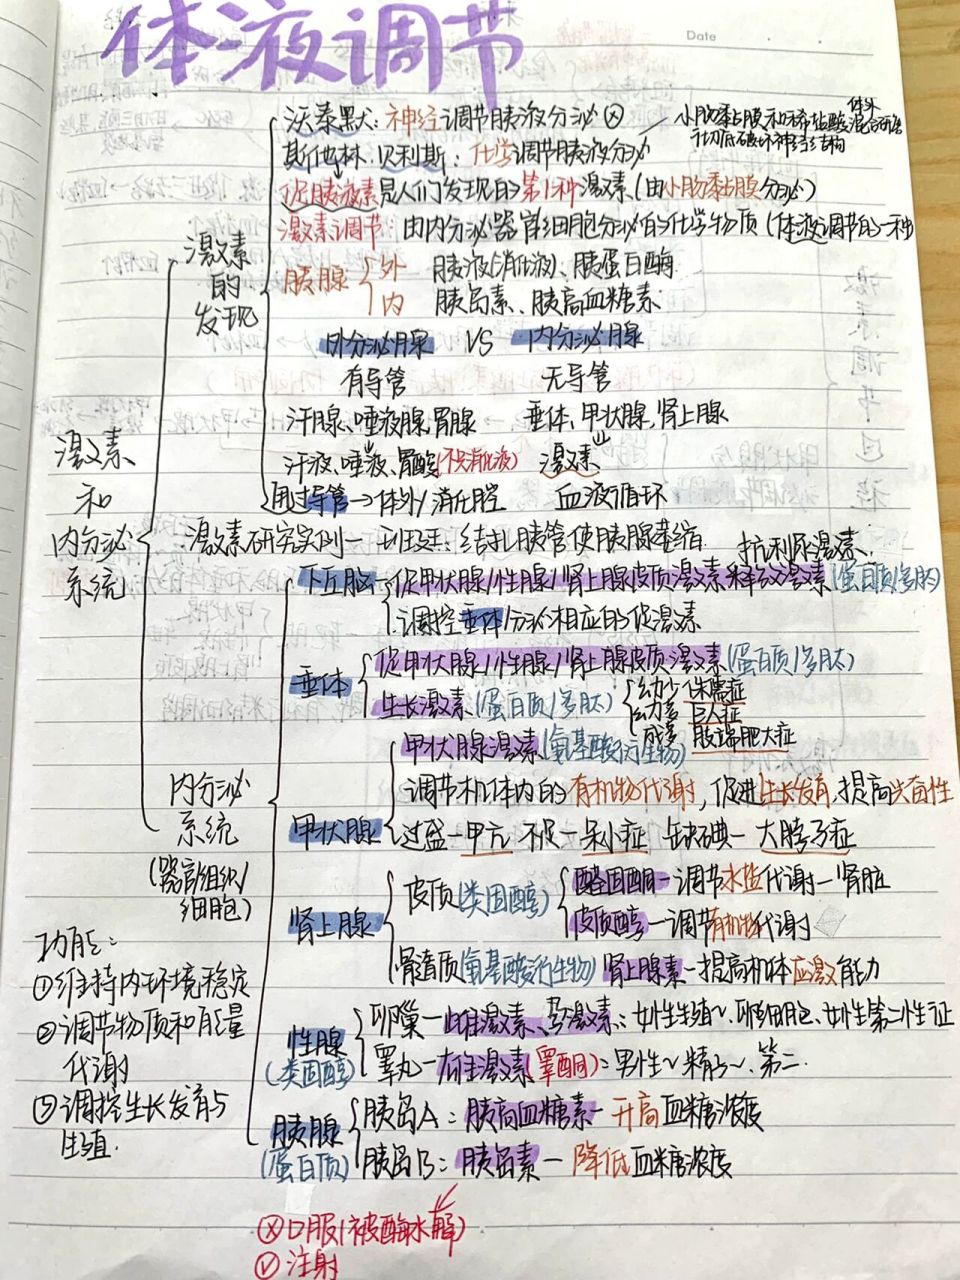 体液调节
Date
沃泰默、犬：神经调节胰液分泌 ⓧ
小肠黏膜和稀盐酸混合研磨 体外
斯他林、贝利斯：化学调节胰液分泌
促胰液素是人们发现的第1种激素(由小肠黏膜分泌)
激素调节：由内分泌器官/细胞分泌的化学物质(体液调节的一种)
激素的发现
胰腺
外 胰液(消化液)、胰蛋白酶
内 胰岛素、胰高血糖素
外分泌腺 VS 内分泌腺
有导管 无导管
汗腺、唾液腺、胃腺 垂体、甲状腺、肾上腺
汗液、唾液、胃酸(不只消化液) 激素
通过导管→体外/消化腔 血液循环
激素和内分泌系统
激素研究实例一 班廷：结扎胰管使胰腺萎缩
抗利尿激素
下丘脑 促甲状腺/性腺/肾上腺皮质激素释放激素(蛋白质/多肽)
调控垂体分泌相应的促激素
垂体 促甲状腺/性腺/肾上腺皮质激素(蛋白质/多肽)
生长激素(蛋白质/多肽)
幼少 侏儒症
幼多 巨人症
成多 肢端肥大症
甲状腺激素(氨基酸衍生物)
内分泌系统
(器官/组织/细胞)
调节机体内的有机物代谢,促进生长发育,提高兴奋性
甲状腺 过盛—甲亢 不足—呆小症 缺碘—大脖子症
肾上腺
皮质(类固醇)
醛固酮—调节水盐代谢—肾脏
皮质醇—调节有机物代谢
髓质(氨基酸衍生物) 肾上腺素—提高机体应激能力
功能：
①维持内环境稳定
②调节物质和能量代谢
③调控生长发育与生殖.
性腺
(类固醇)
卵巢—雌激素、孕激素：女性生殖~、卵细胞、女性第二性征
睾丸—雄激素(睾酮)：男性~ 精子~、第二.
胰腺
(蛋白质)
胰岛A：胰高血糖素—升高血糖浓度
胰岛B：胰岛素—降低血糖浓度
ⓧ口服(被酶水解)
ⓥ注射